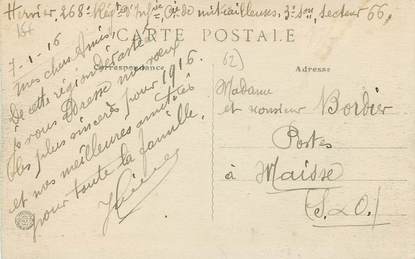 Hervier, 268e Régt d'Infie, Cie de mitrailleuses, 3e son, secteur 66,
CARTE POSTALE
Correspondance
Adresse
7-1-16
Mes chers Amis,
De cette région dévastée
je vous adresse mes vœux
les plus sincères pour 1916.
et nos meilleures amitiés
pour toute la famille.
62)
Madame
et monsieur Bordier
Postes
à Maisse
(S&O)